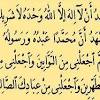 هَدُ أَنْ لَا إِلٰهَ إِلَّا اللهُ وَحْدَهُ لَا شَرِيكَ
هَدُ أَنَّ مُحَمَّدًا عَبْدُهُ وَرَسُولُهُ
اجْعَلْنِي مِنَ التَّوَّابِينَ وَاجْعَلْنِي
وَاجْعَلْنِي مِنْ عِبَادِكَ الصَّالِ